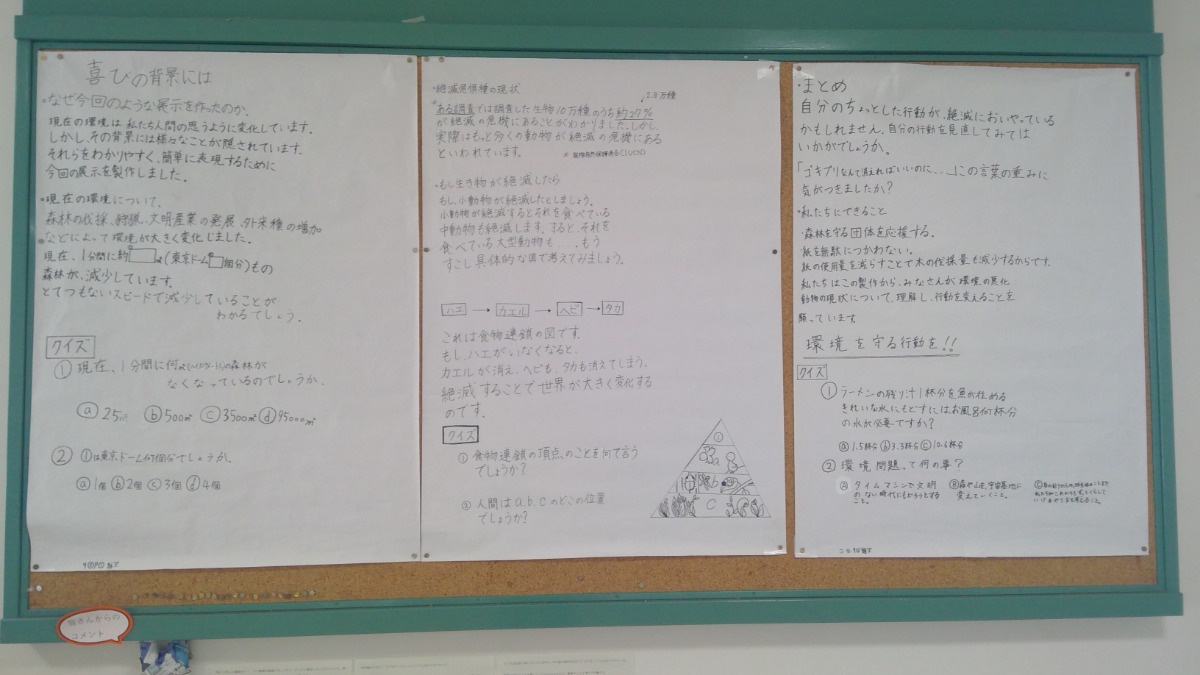 喜びの背景には
・なぜ今回のような展示を作ったのか。
現在の環境は私たち人間の思うように変化しています。
しかし、その背景には様々なことが隠されています。
それらをわかりやすく、簡単に表現するために
今回の展示を製作しました。
・現在の環境について、
森林の伐採、狩猟、文明産業の発展、外来種の増加
などによって環境が大きく変化しました。
現在、1分間に約□㎡(東京ドーム□個分)もの
森林が、減少しています。
とてつもないスピードで減少していることが
わかるでしょう。
クイズ
① 現在、1分間に何㎡の森林が
なくなっているのでしょうか。
ⓐ25㎡ ⓑ500㎡ ⓒ3500㎡ ⓓ95000㎡
② ①は東京ドーム何個分でしょうか。
ⓐ1個 ⓑ2個 ⓒ3個 ⓓ4個
・絶滅危惧種の現状
2.8万種
・ある調査では調査した生物10万種のうち約27%
が絶滅の危機にあることがわかりました。しかし、
実際はもっと多くの動物が絶滅の危機にある
といわれています。
※国際自然保護連合(IUCN)
・もし生き物が絶滅したら
もし、小動物が絶滅したとしましょう。
小動物が絶滅するとそれを食べている
中動物も絶滅します。すると、それを
食べている大型動物も……もう
すこし具体的な図で考えてみましょう。
ハエ → カエル → ヘビ → タカ
これは食物連鎖の図です。
もし、ハエがいなくなると、
カエルが消え、ヘビも、タカも消えてしまう。
絶滅することで世界が大きく変化する
のです。
クイズ
① 食物連鎖の頂点のことを何て言う
でしょうか?
② 人間はa,b,cのどこの位置
でしょうか?
①
a
b
c
・まとめ
自分のちょっとした行動が、絶滅においやっている
かもしれません。自分の行動を見直してみては
いかがでしょうか。
「ゴキブリなんて消えればいいのに……」この言葉の重みに
気がつきましたか?
・私たちにできること
・森林を守る団体を応援する。
・紙を無駄につかわない。
紙の使用量を減らすことで木の伐採量も減少するからです。
私たちはこの製作から、みなさんが環境の悪化
動物の現状について、理解し、行動を変えることを
願っています
環境を守る行動を!!
クイズ
① ラーメンの残り汁1杯分を魚が住める
きれいな水にもどすにはお風呂何杯分
の水が必要ですか?
ⓐ1.5杯分 ⓑ3.3杯分 ⓒ10.6杯分
② 環境問題、って何の事?
Ⓐ タイムマシンで文明
のない時代にもどろうとする
こと。
Ⓑ 森や山を、宇宙基地に
変えていくこと。
皆さんからの
コメント